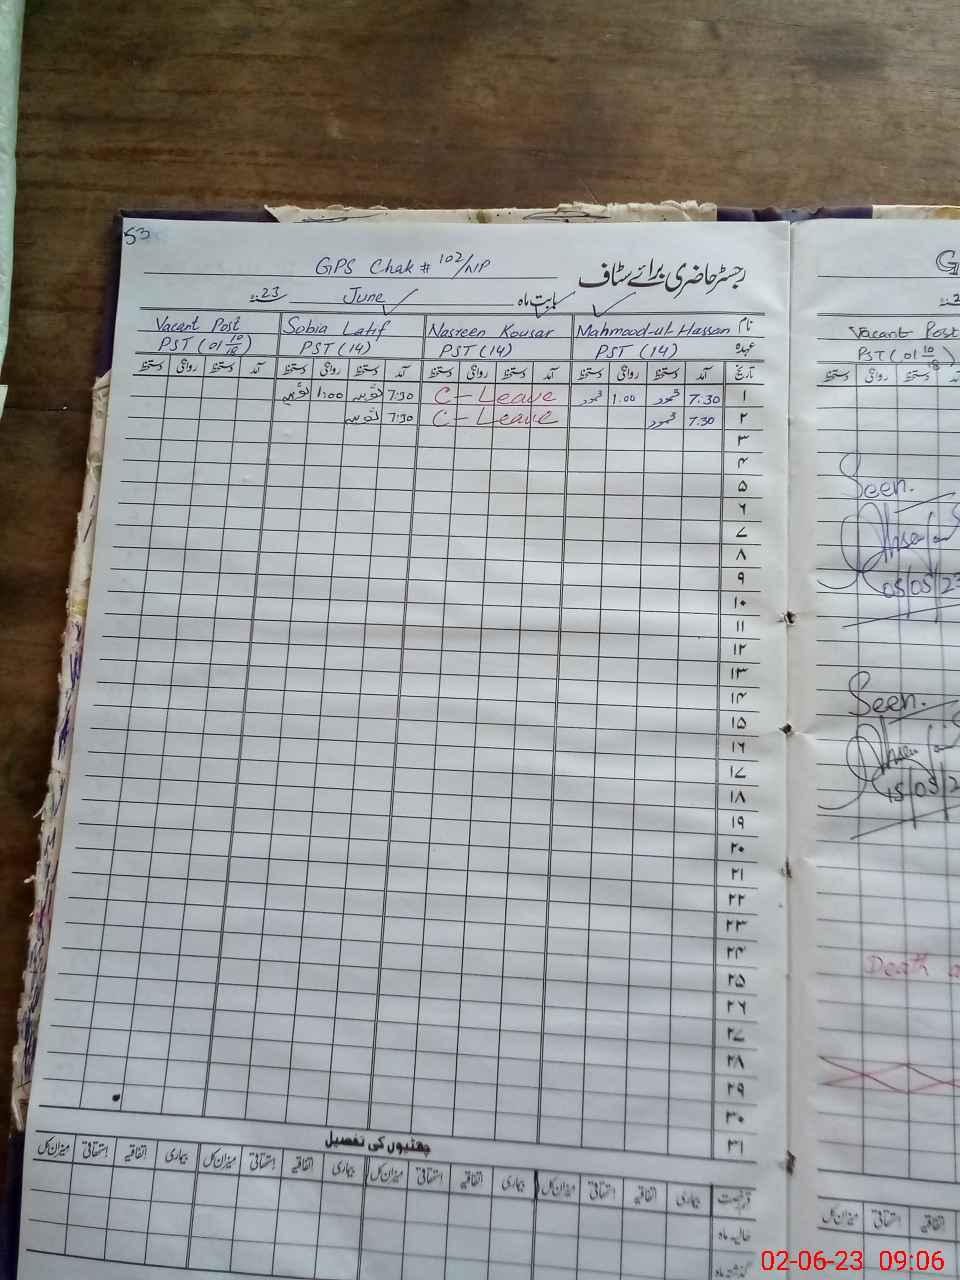 53
GPS Chak # 102/NP
رجسٹر حاضری برائے سٹاف
بابت ماہ June 23ء
نام Mahmood-ul-Hassan Nasreen Kousar Sobia Latif Vacant Post
عہدہ PST (14) PST (14) PST (14) PST (01 10/18)
تاریخ آمد دستخط روانگی دستخط آمد دستخط روانگی دستخط آمد دستخط روانگی دستخط آمد دستخط روانگی دستخط
۱ 7:30 محمود 1.00 محمود C-Leave 7:30 1:00
۲ 7:30 محمود C-Leave 7:30
۳
۴
۵
۶
۷
۸
۹
۱۰
۱۱
۱۲
۱۳
۱۴
۱۵
۱۶
۱۷
۱۸
۱۹
۲۰
۲۱
۲۲
۲۳
۲۴
۲۵
۲۶
۲۷
۲۸
۲۹
۳۰
۳۱
چھٹیوں کی تفصیل
قسم رخصت بیماری اتفاقیہ استحقاقی میزان کل بیماری اتفاقیہ استحقاقی میزان کل بیماری اتفاقیہ استحقاقی میزان کل بیماری اتفاقیہ استحقاقی میزان کل
حالیہ ماہ
گذشتہ ماہ
G
Vacant Post
PST (01 10/18)
آمد دستخط روانگی دستخط
Seen.
05/05/23
Seen.
15/05/2
Death a
اتفاقیہ استحقاقی میزان کل
02-06-23 09:06